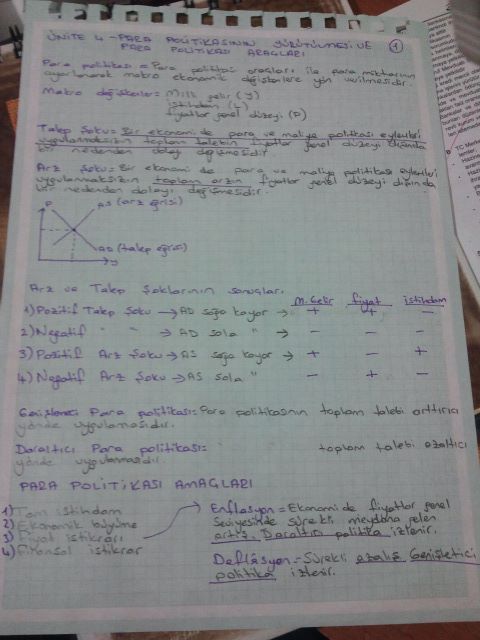 ÜNİTE 4 - PARA POLİTİKASININ YÜRÜTÜLMESİ VE
PARA POLİTİKASI ARAÇLARI
1
Para politikası = Para politikası araçları ile para miktarının
ayarlanarak makro ekonomik değişkenlere yön verilmesidir.
Makro değişkenler = Milli gelir (Y)
istihdam (L)
fiyatlar genel düzeyi (P)
Talep Şoku = Bir ekonomide para ve maliye politikası eylemleri
uygulanmaksızın toplam talebin fiyatlar genel düzeyi dışında
bir nedenden dolayı değişmesidir.
Arz Şoku = Bir ekonomide para ve maliye politikası eylemleri
uygulanmaksızın toplam arzın fiyatlar genel düzeyi dışında
bir nedenden dolayı değişmesidir.
P
AS (arz eğrisi)
AD (talep eğrisi)
Y
Arz ve Talep Şoklarının sonuçları
M.Gelir fiyat istihdam
1) Pozitif Talep Şoku → AD sağa kayar → + + -
2) Negatif " " → AD sola " → - - -
3) Pozitif Arz Şoku → AS sağa kayar → + - +
4) Negatif Arz Şoku → AS sola " - + -
Genişletici Para politikası: Para politikasının toplam talebi arttırıcı
yönde uygulamasıdır.
Daraltıcı Para politikası: toplam talebi azaltıcı
yönde uygulanmasıdır.
PARA POLİTİKASI AMAÇLARI
1) Tam istihdam
2) Ekonomik büyüme
3) Fiyat istikrarı
4) Finansal istikrar
Enflasyon = Ekonomide fiyatlar genel
Seviyesinde sürekli meydana gelen
artış. Daraltıcı politika izlenir.
Deflasyon = Sürekli azalış Genişletici
politika izlenir.